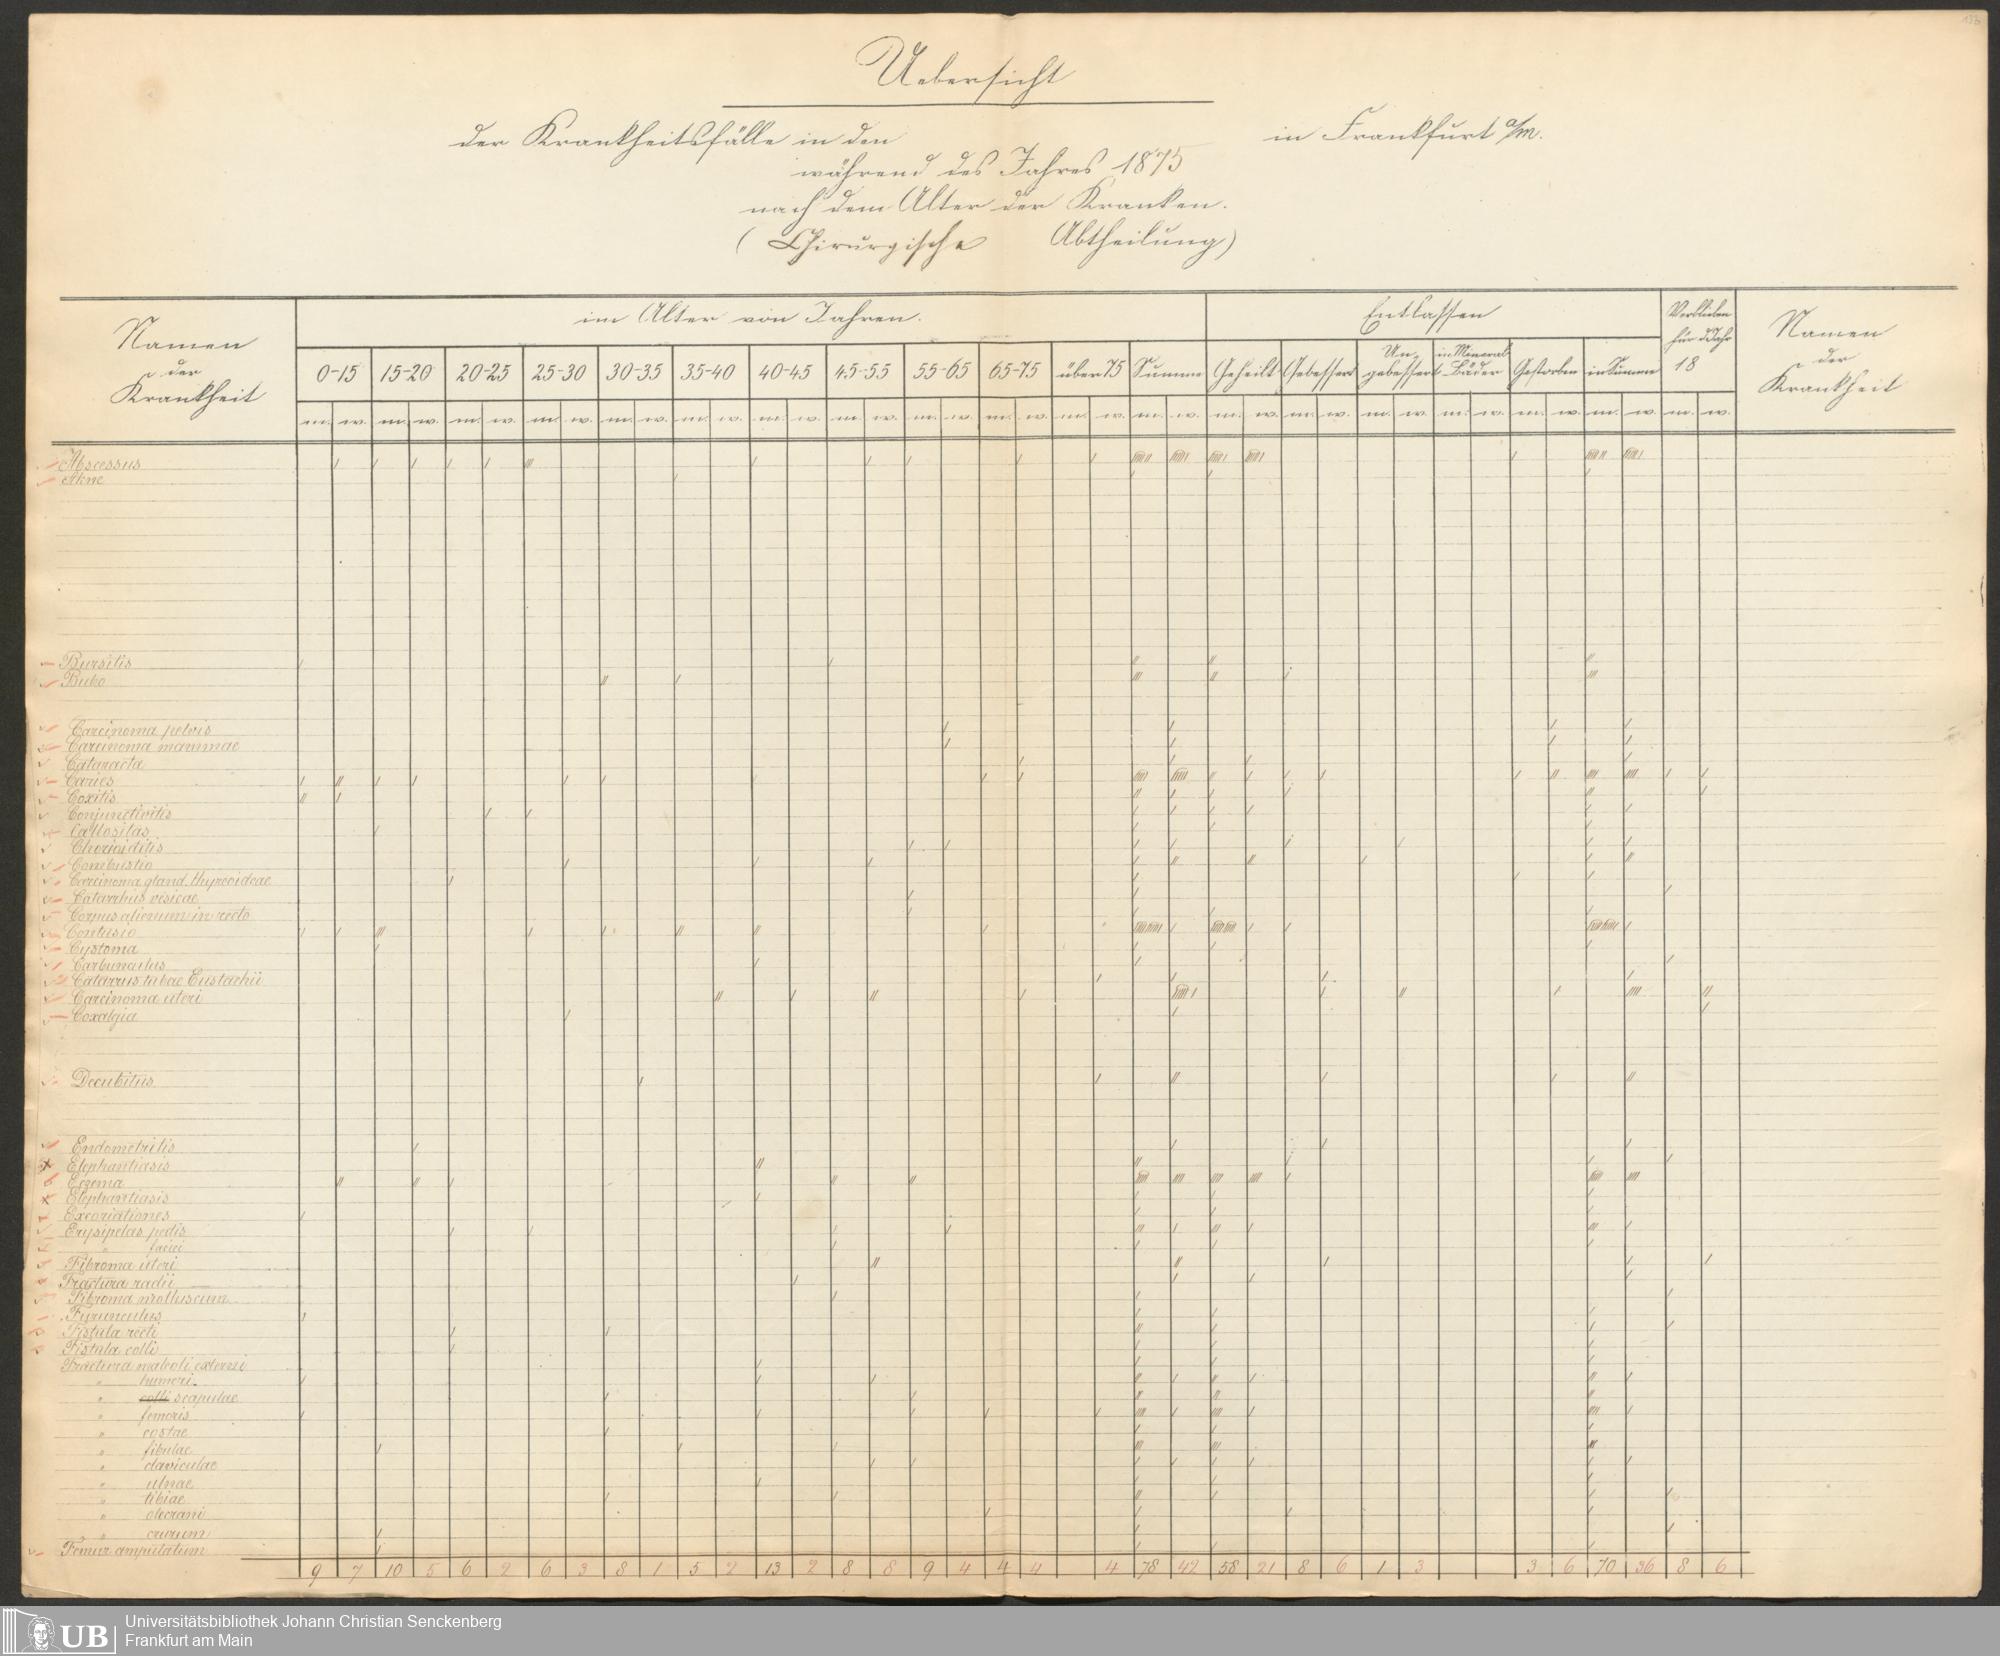 133
Uebersicht
der Krankheitsfälle in den in Frankfurt a/m.
während des Jahres 1875
nach dem Alter der Kranken.
(Chirurgische Abtheilung)
Namen der Krankheit
im Alter von Jahren.
Entlassen
Verblieben für d Jahr 18
Namen der Krankheit
0-15 15-20 20-25 25-30 30-35 35-40 40-45 45-55 55-65 65-75 über 75 Summe Geheilt Gebessert Ungebessert in Mineral-Bäder Gestorben in Summen
m. w. m. w. m. w. m. w. m. w. m. w. m. w. m. w. m. w. m. w. m. w. m. w. m. w. m. w. m. w. m. w. m. w. m. w. m. w.
Abscessus
Akne
Bursitis
Bubo
Carcinoma pelvis
Carcinoma mammae
Cataracta
Caries
Coxitis
Conjunctivitis
Callositas
Chorioiditis
Combustio
Carcinoma gland. thyreoideae
Catarrhus vesicae
Corpus alienum in recto
Contusio
Cystoma
Carbunculus
Catarrus tubae Eustachii
Carcinoma uteri
Coxalgia
Decubitus
Endometritis
Elephantiasis
Eczema
Elephantiasis
Excoriationes
Erysipelas pedis
" faciei
Fibroma uteri
Fractura radii
Fibroma molluscum
Furunculus
Fistula recti
Fistula colli
Fractura maleoli externi
" humeri
" colli scapulae
" femoris
" costae
" fibulae
" claviculae
" ulnae
" tibiae
" olecrani
" crurum
Femur amputatum
9 7 10 5 6 2 6 3 8 1 5 2 13 2 8 8 9 4 4 4 4 78 42 58 21 8 6 1 3 3 6 70 36 8 6
UB
Universitätsbibliothek Johann Christian Senckenberg
Frankfurt am Main